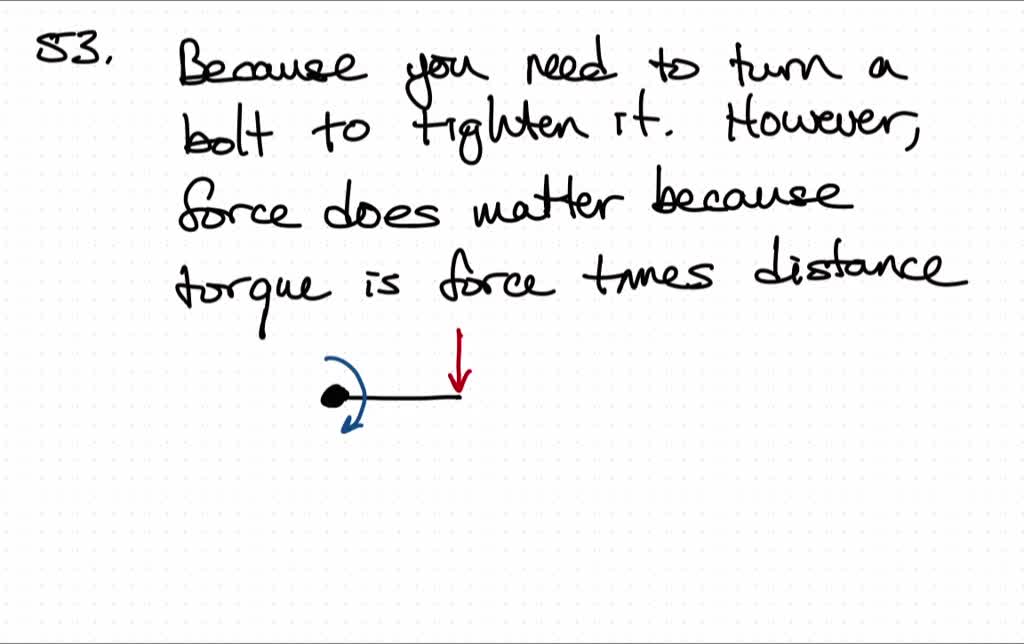 53. Because you need to turn a
bolt to tighten it. However,
force does matter because
torque is force times distance